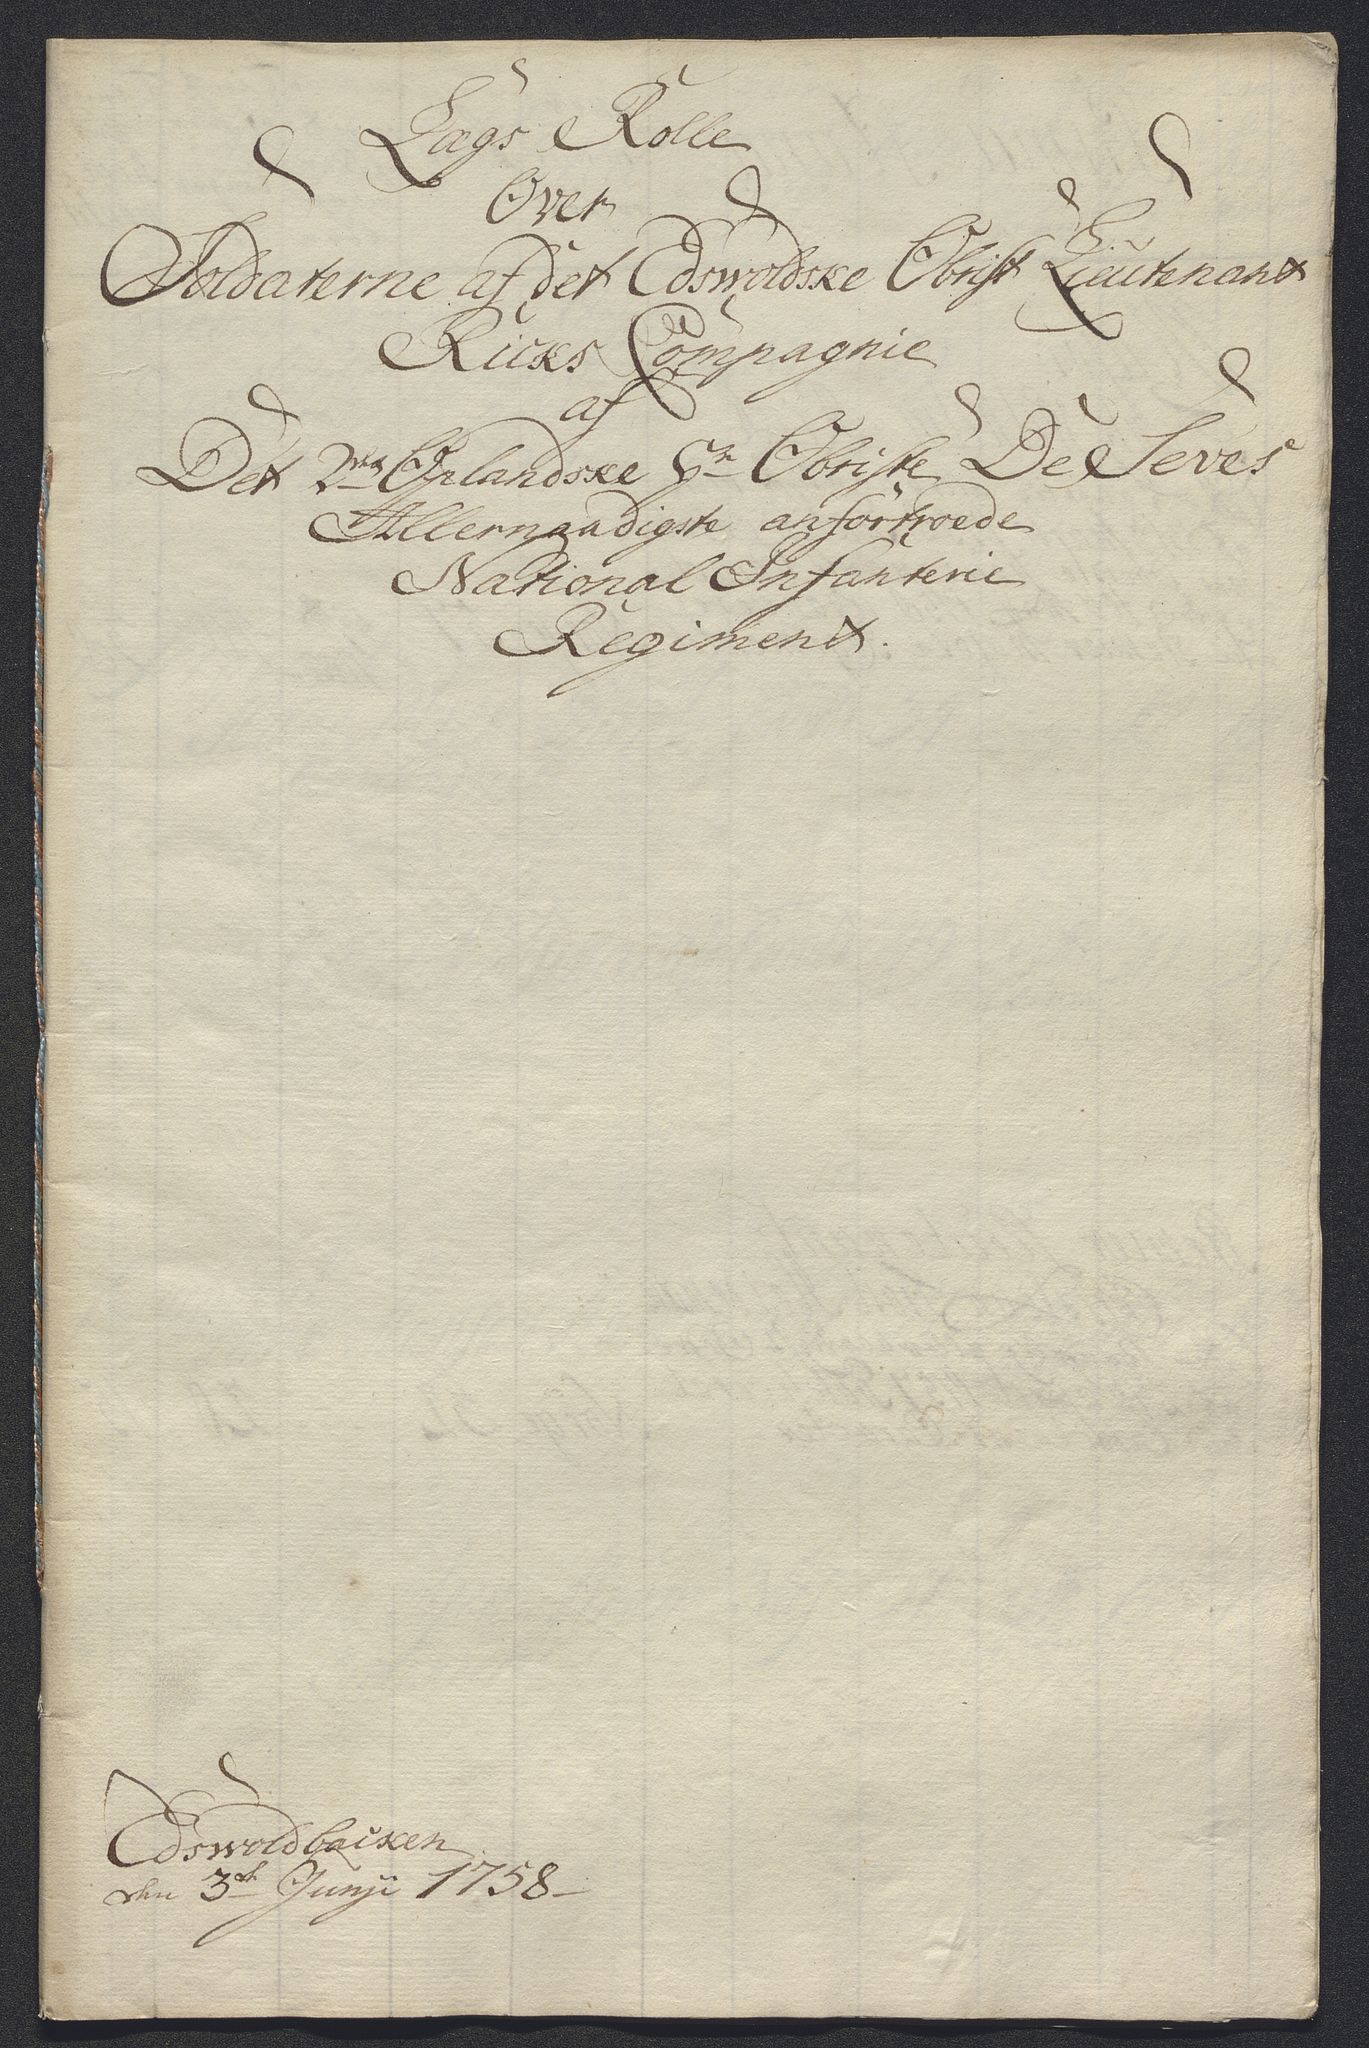 Lægs Rolle
Over
Soldaterne af det Edswoldske Obrist Lieutenant
Ricks Compagnie
af
Det 2de Oplandske Hr Obriste De Seves
Allernaadigste anfortroede
National Infanterie
Regiment.
Edswoldbacken
den 3te Junji 1758